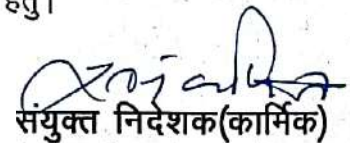 हेतु।
संयुक्त निदेशक(कार्मिक)